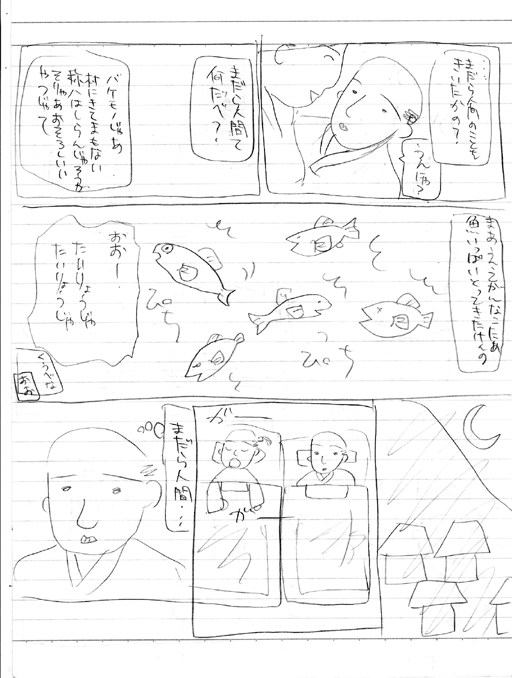 まだら人間のことも
きいたかの?
…うんにゃ?
まだら人間て
何だべ?
バケモノじゃあ
村にきてまもない
称八はしらんじゃろうが
そりゃあおそろしいい
やつじゃて
まあ、ええがんなこたぁ
魚いっぱいとってきたけんの
ぴち
ぴち
おおー
たいりょうじゃ
たいりょうじゃ
くうべな
おお
ガー
ガ
まだら人間…